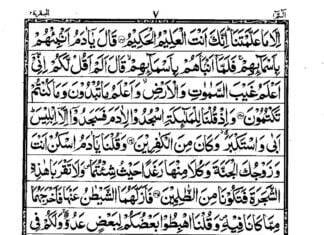 البقرة ٢
٧
الٓمّٓ ١
اِلَّا مَا عَلَّمْتَنَا اِنَّكَ اَنْتَ الْعَلِيْمُ الْحَكِيْمُ قَالَ يٰۤاٰدَمُ اَنْۢبِئْهُمْ
بِاَسْمَآئِهِمْ فَلَمَّاۤ اَنْۢبَاَهُمْ بِاَسْمَآئِهِمْ قَالَ اَلَمْ اَقُلْ لَّكُمْ اِنِّیْۤ
اَعْلَمُ غَيْبَ السَّمٰوٰتِ وَالْاَرْضِ وَاَعْلَمُ مَا تُبْدُوْنَ وَمَا كُنْتُمْ
تَكْتُمُوْنَ وَاِذْ قُلْنَا لِلْمَلٰٓئِكَةِ اسْجُدُوْا لِاٰدَمَ فَسَجَدُوْۤا اِلَّاۤ اِبْلِيْسَ
اَبٰى وَاسْتَكْبَرَ وَكَانَ مِنَ الْكٰفِرِيْنَ وَقُلْنَا يٰۤاٰدَمُ اسْكُنْ اَنْتَ
وَزَوْجُكَ الْجَنَّةَ وَكُلَا مِنْهَا رَغَدًا حَيْثُ شِئْتُمَا وَلَا تَقْرَبَا هٰذِهِ
الشَّجَرَةَ فَتَكُوْنَا مِنَ الظّٰلِمِيْنَ فَاَزَلَّهُمَا الشَّيْطٰنُ عَنْهَا فَاَخْرَجَهُمَا
مِمَّا كَانَا فِيْهِ وَقُلْنَا اهْبِطُوْا بَعْضُكُمْ لِبَعْضٍ عَدُوٌّ وَلَكُمْ فِی